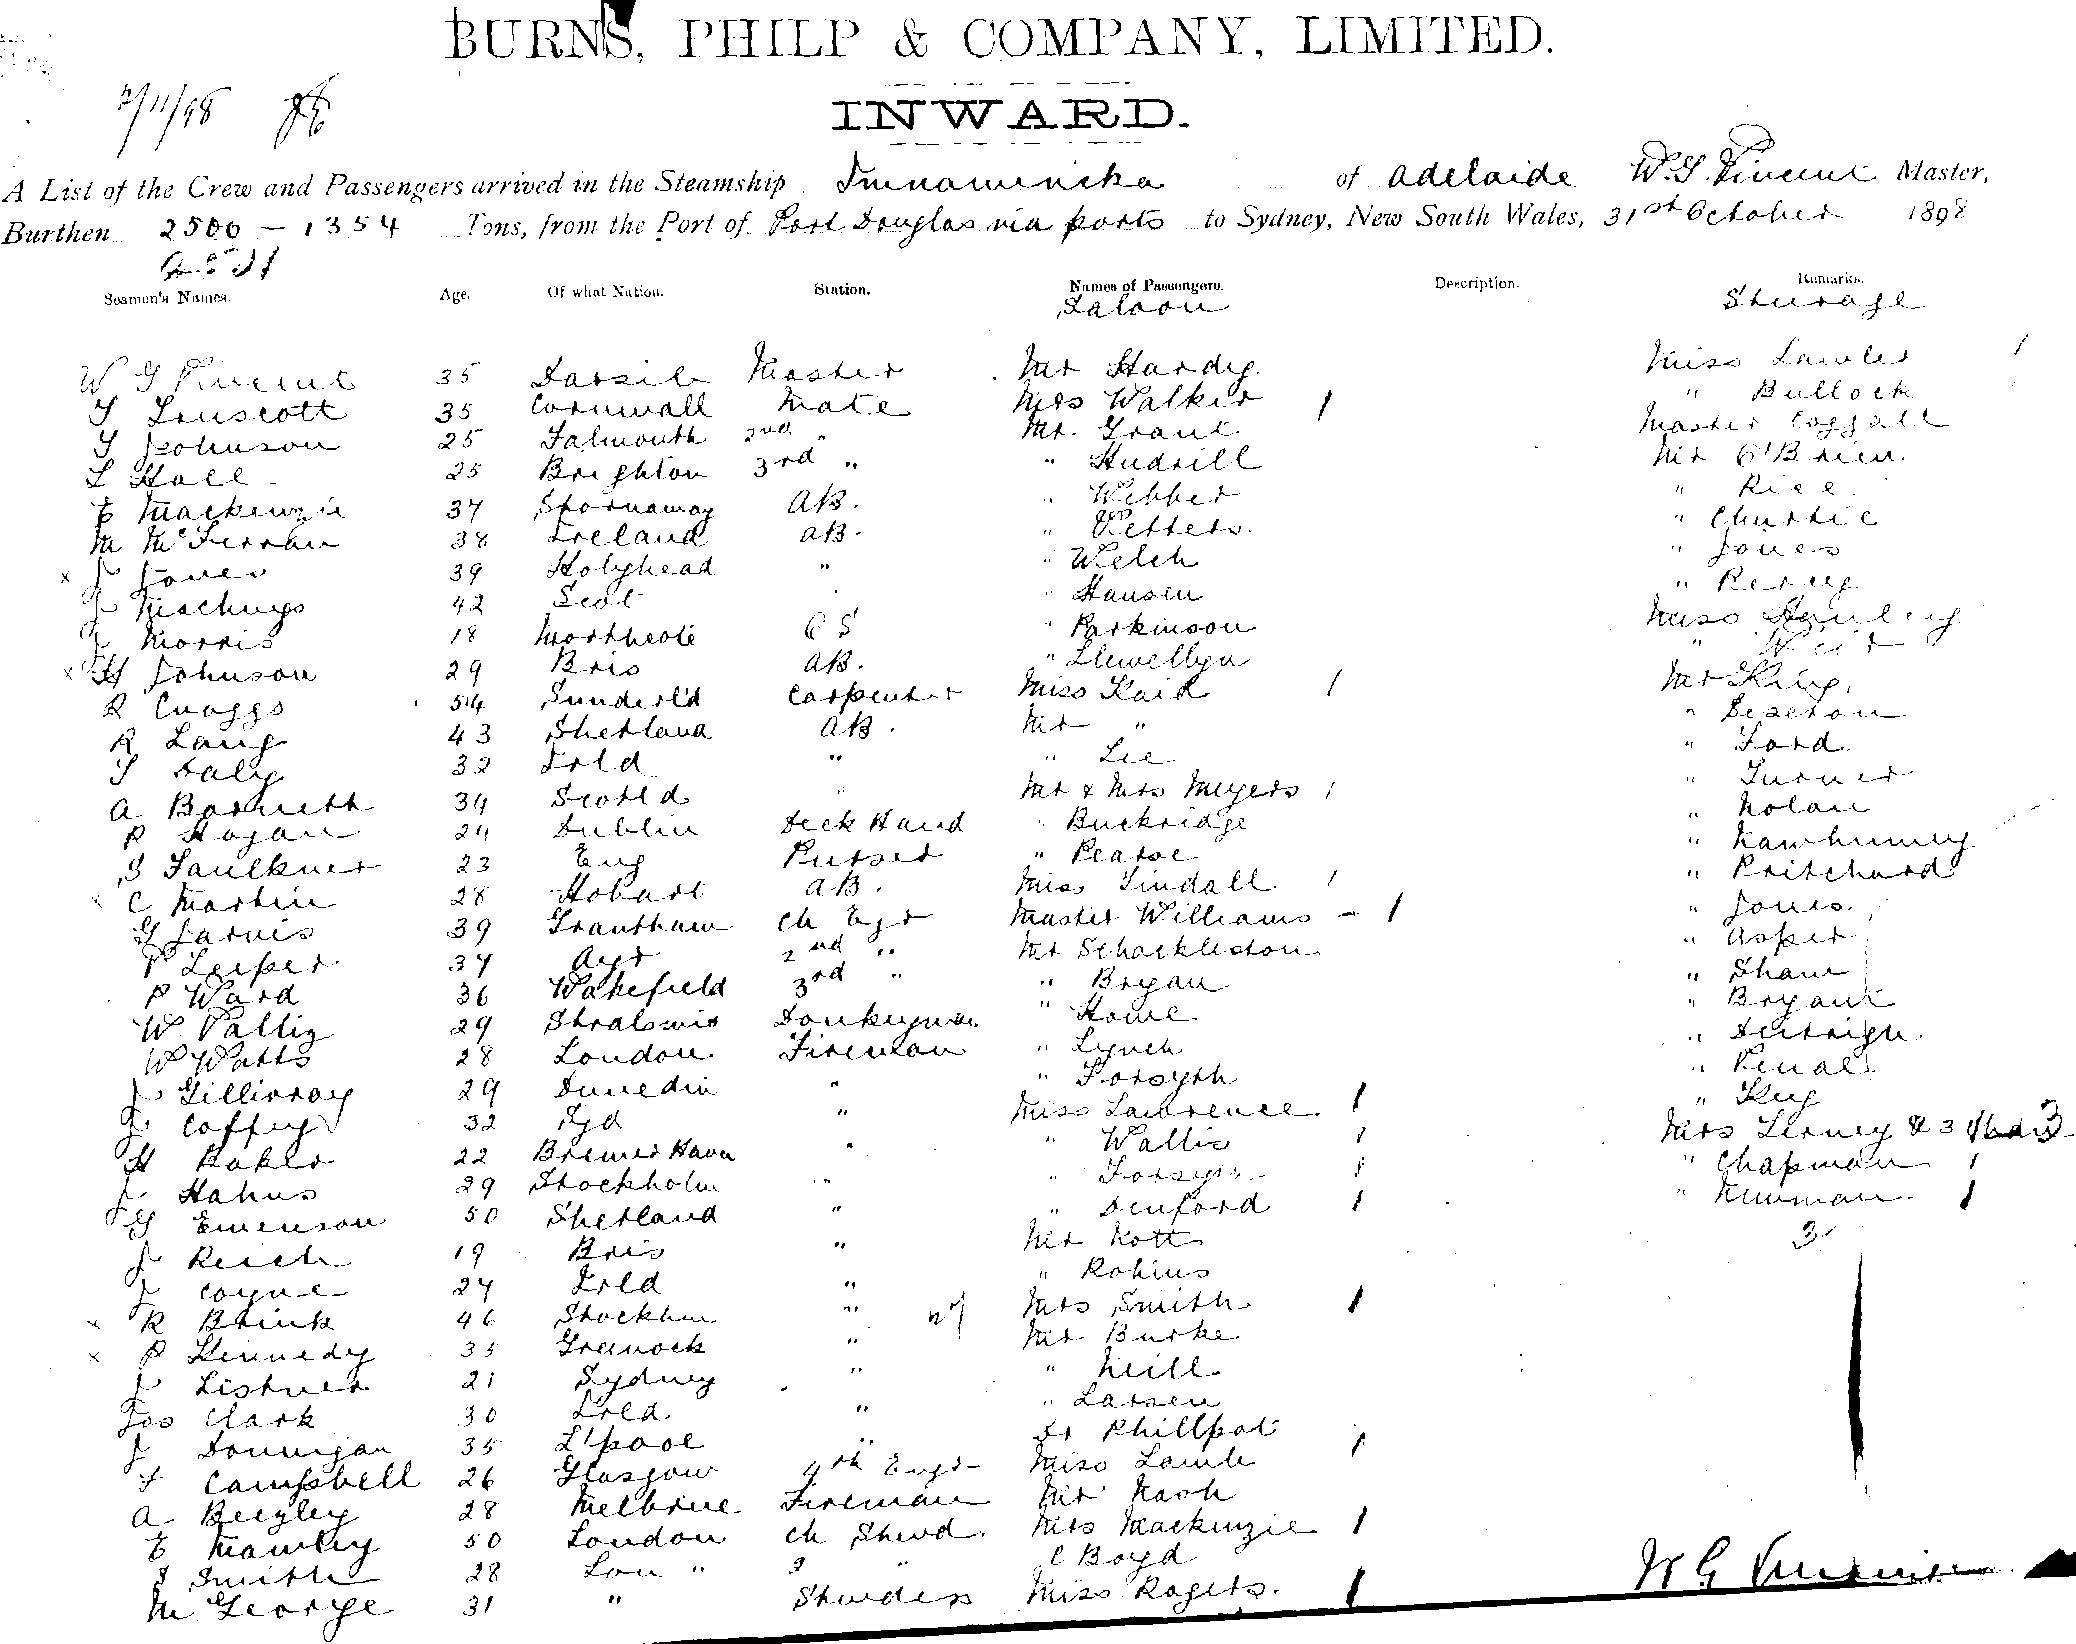 BURNS, PHILP & COMPANY, LIMITED.
2/11/98
INWARD.
A List of the Crew and Passengers arrived in the Steamship Innamincka of Adelaide W. G. Vincent Master,
Burthen 2500 – 1354 Tons, from the Port of Port Douglas via ports to Sydney, New South Wales, 31st October 1898
Seamen's Names. Age. Of what Nation. Station. Names of Passengers. Description. Remarks.
Saloon Steerage
W G Vincent 35 Master Mr Hardy. Miss Lawler 1
Luscott 35 Cornwall Mate Mrs Walker 1 " Bullock
Johnson 25 Falmouth 2nd " Mr. Grant Master Coggall
Hall 25 Brighton 3rd " " Hudrill Mr O'Brien.
E Mackenzie 37 Stornaway AB. " Webber " Rice
M McFerran 38 Ireland AB. " Petters. " Christie
x J Jones 39 Holyhead " " Welch " Jones
J 42 Scot " Hansen " Percy
J Morris 18 Northcote OS " Parkinson Miss
x H Johnson 29 Bris AB. " Llewellyn
R Cnaggs 54 Sunderl'd Carpenter Miss Kaid 1 Mr King.
R Lang 43 Shetland AB. Mr " " Sexton
Daly 32 Irld " " Lee " Ford
A Barnett 34 Scotld " Mr & Mrs Meyers 1 " Turner
P Hogan 24 Dublin Deck Hand " Buckridge " Nolan
S Faulkner 23 Eng Purser " Pearse "
x C Martin 28 Hobart AB. Miss Tindall 1 " Pritchard
G Jarvis 39 Grantham Ch Egr Master Williams – 1 " Jones.
Leeper 37 Ayr 2nd " Mr Schackleston " Asper
P Ward 36 Wakefield 3rd " " Bryan " Shaw
W 29 Donkeyman " Howe " Bryant
W Watts 28 London Fireman " Lynch "
J Gillivray 29 Dunedin " " Forsyth "
J Coffey 32 Syd " Miss Lawrence. 1 " Key
H Baker 22 Bremer Haven " " Wallis 1 Mrs & 3 3
J Hahns 29 Stockholm " " 1 " Chapman 1
G Emenson 50 Shetland " " Denford 1 " Newman. 1
J Reich 19 Bris " Mr Kott 3
J Coyne 27 Irld " " Robins
x R Brink 46 Stockhm " Mrs Smith 1
x P Kennedy 35 Greenock " Mr Burke
J Listner 21 Sydney " " Neill.
Jos Clark 30 Irld. " " Larsen
J Donnigan 35 L'pool " Dr Phillpot
Campbell 26 Glasgow 4th Engr Miss Lamb 1
A Begley 28 Melbrne Fireman Mr Nash
E Mawley 50 London Ch Stewd. Mrs Mackenzie 1
S Smith 28 Lon " 2 " C Boyd
M George 31 " Stewdess Miss Rogers. 1
W G Vincent